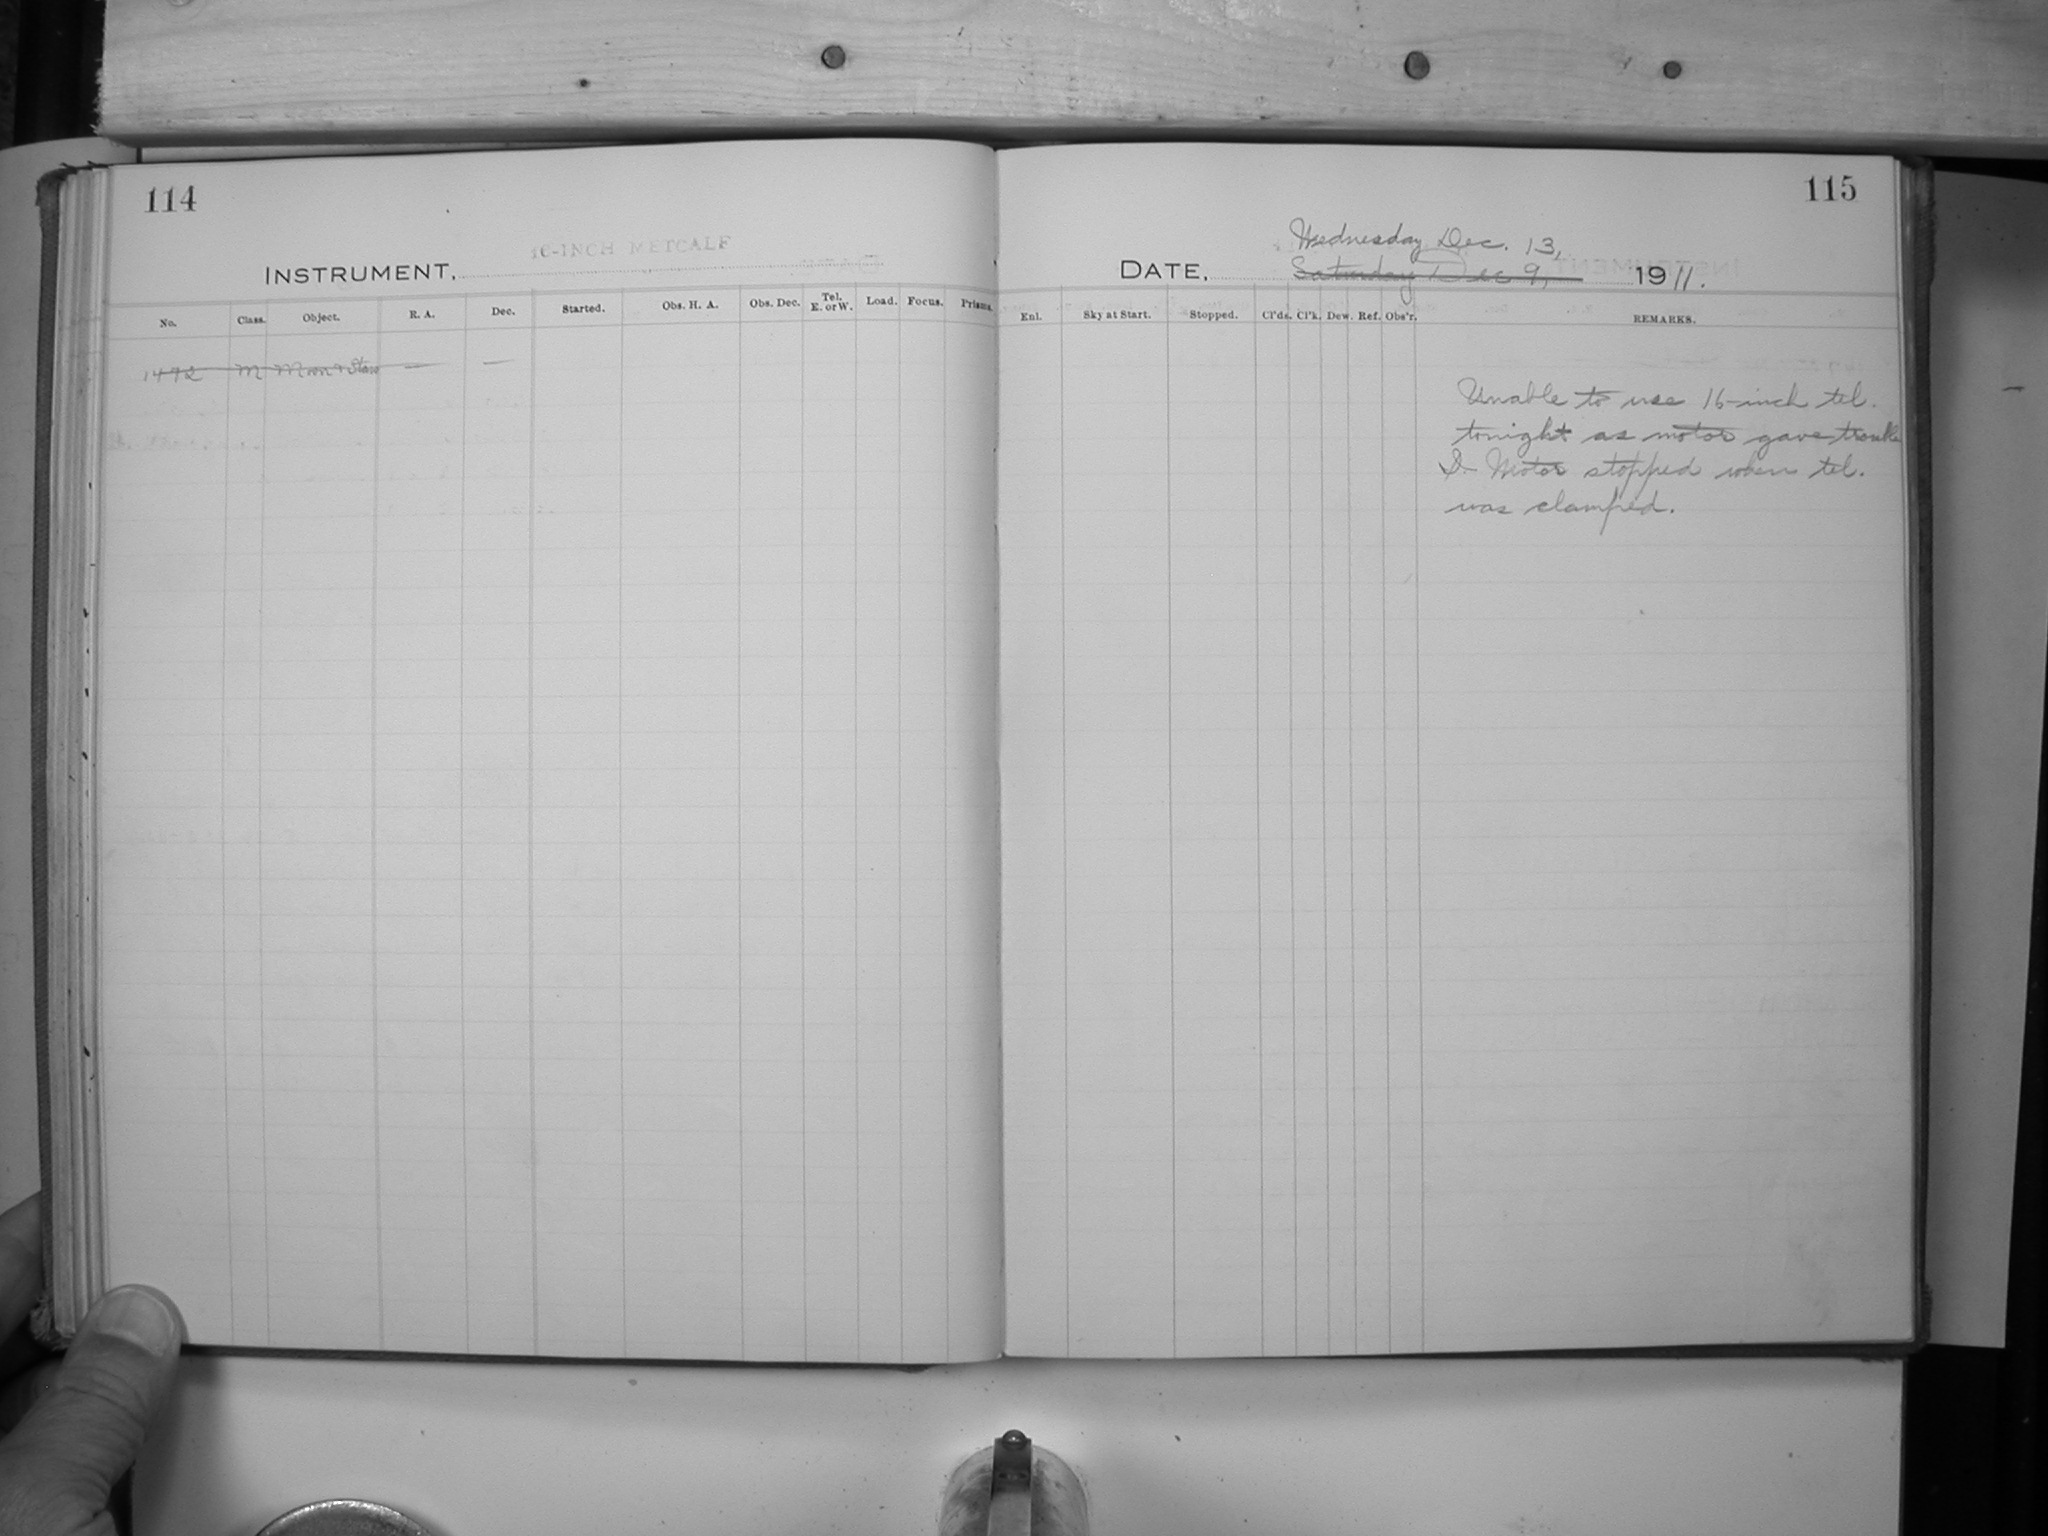 114
16-INCH METCALF
INSTRUMENT,
No. Class. Object. R. A. Dec. Started. Obs. H. A. Obs. Dec. Tel. E. or W. Load. Focus. Prisms.
1472 M Moon & Stars — —
115
Wednesday Dec. 13,
DATE, Saturday Dec 9, 1911.
Enl. Sky at Start. Stopped. Cl'ds. Cl'k. Dew. Ref. Obs'r. REMARKS.
Unable to use 16-inch tel.
tonight as motor gave trouble
Motor stopped when tel.
was clamped.